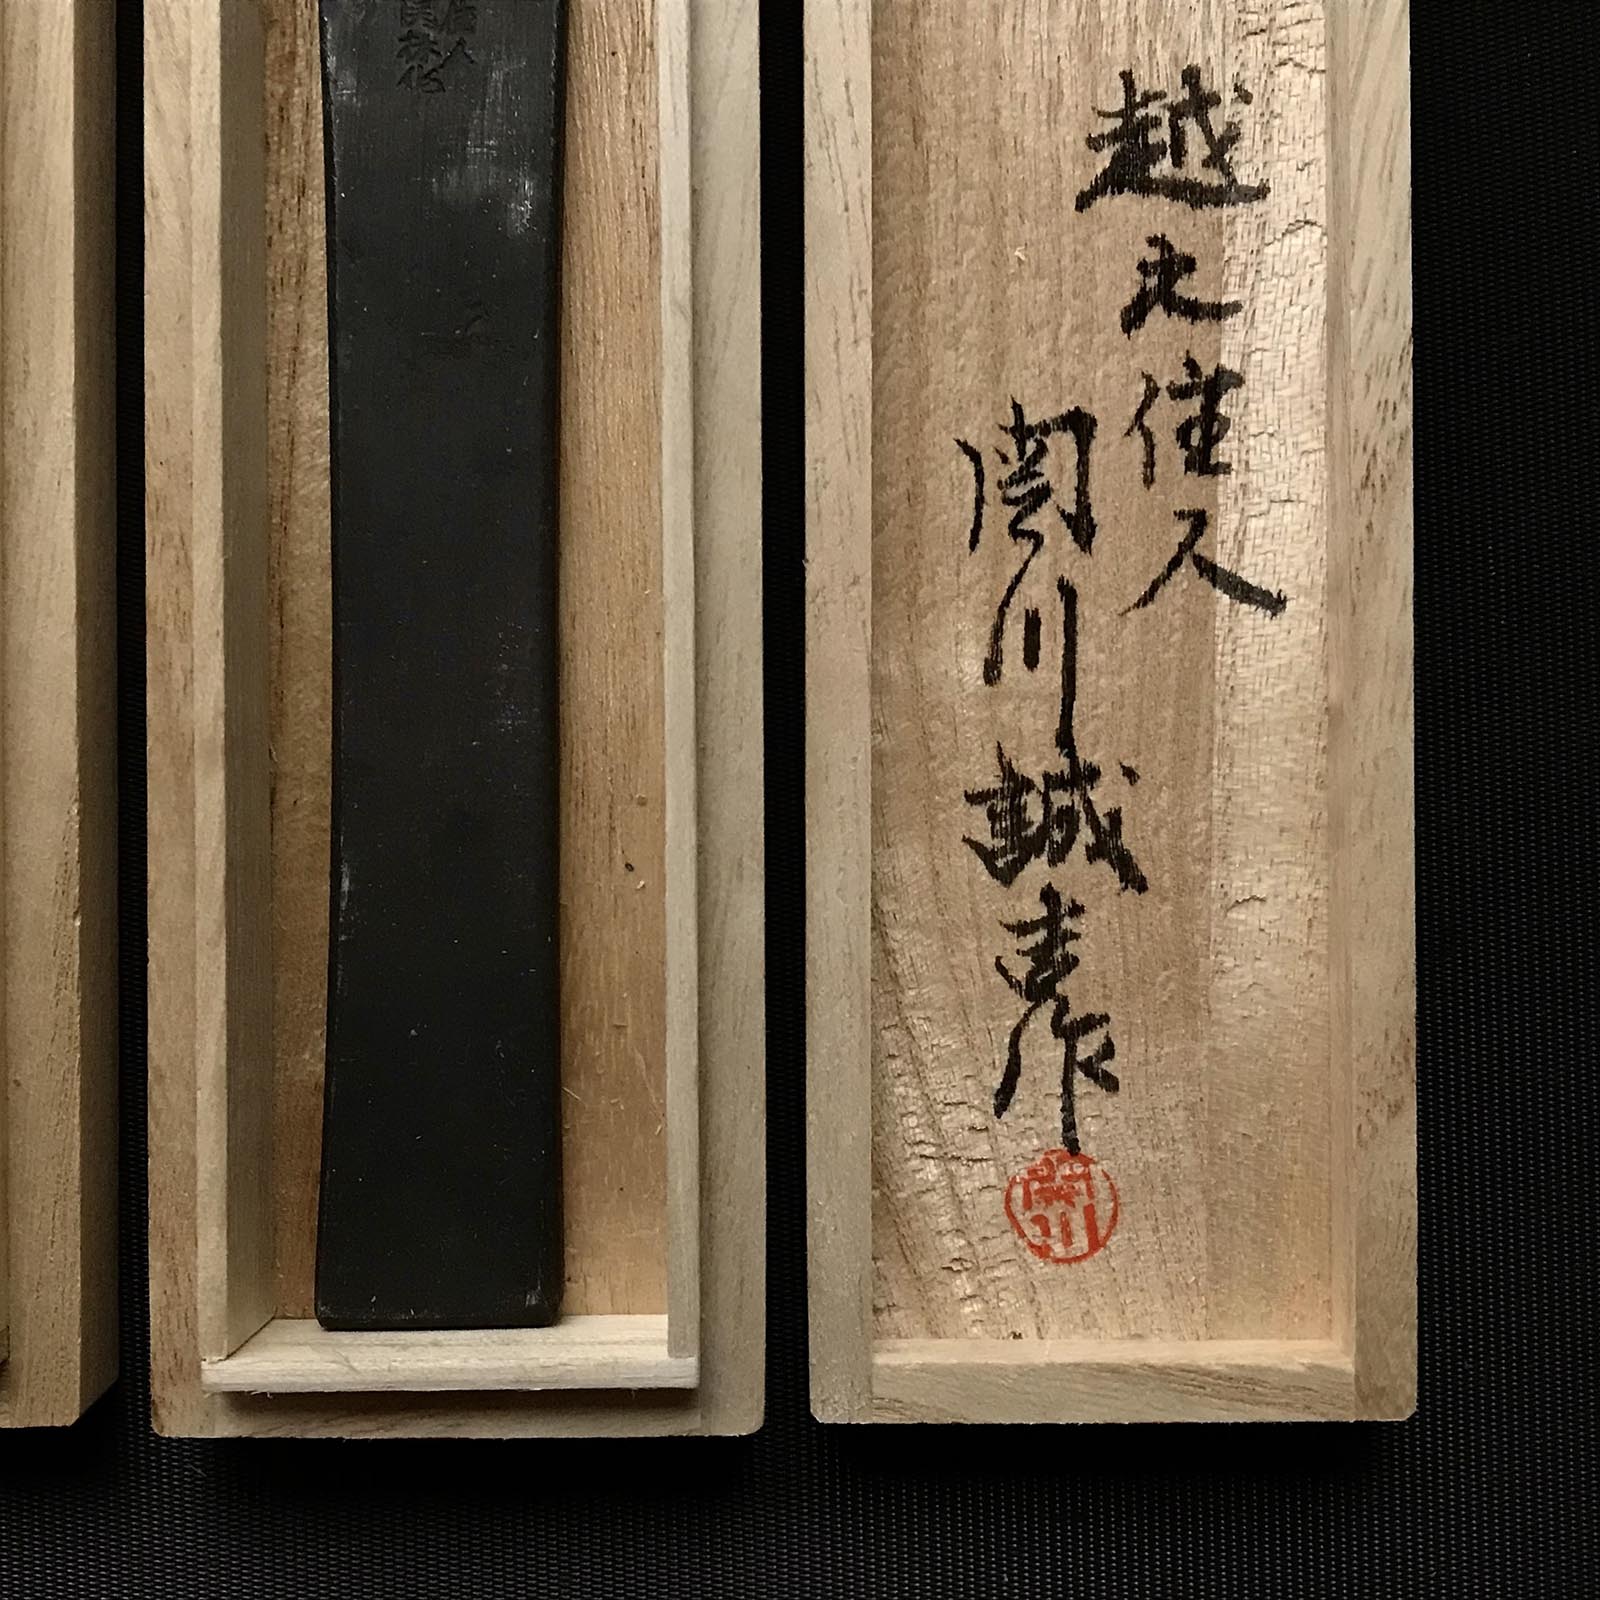 越之住人
関川誠喜作
関川